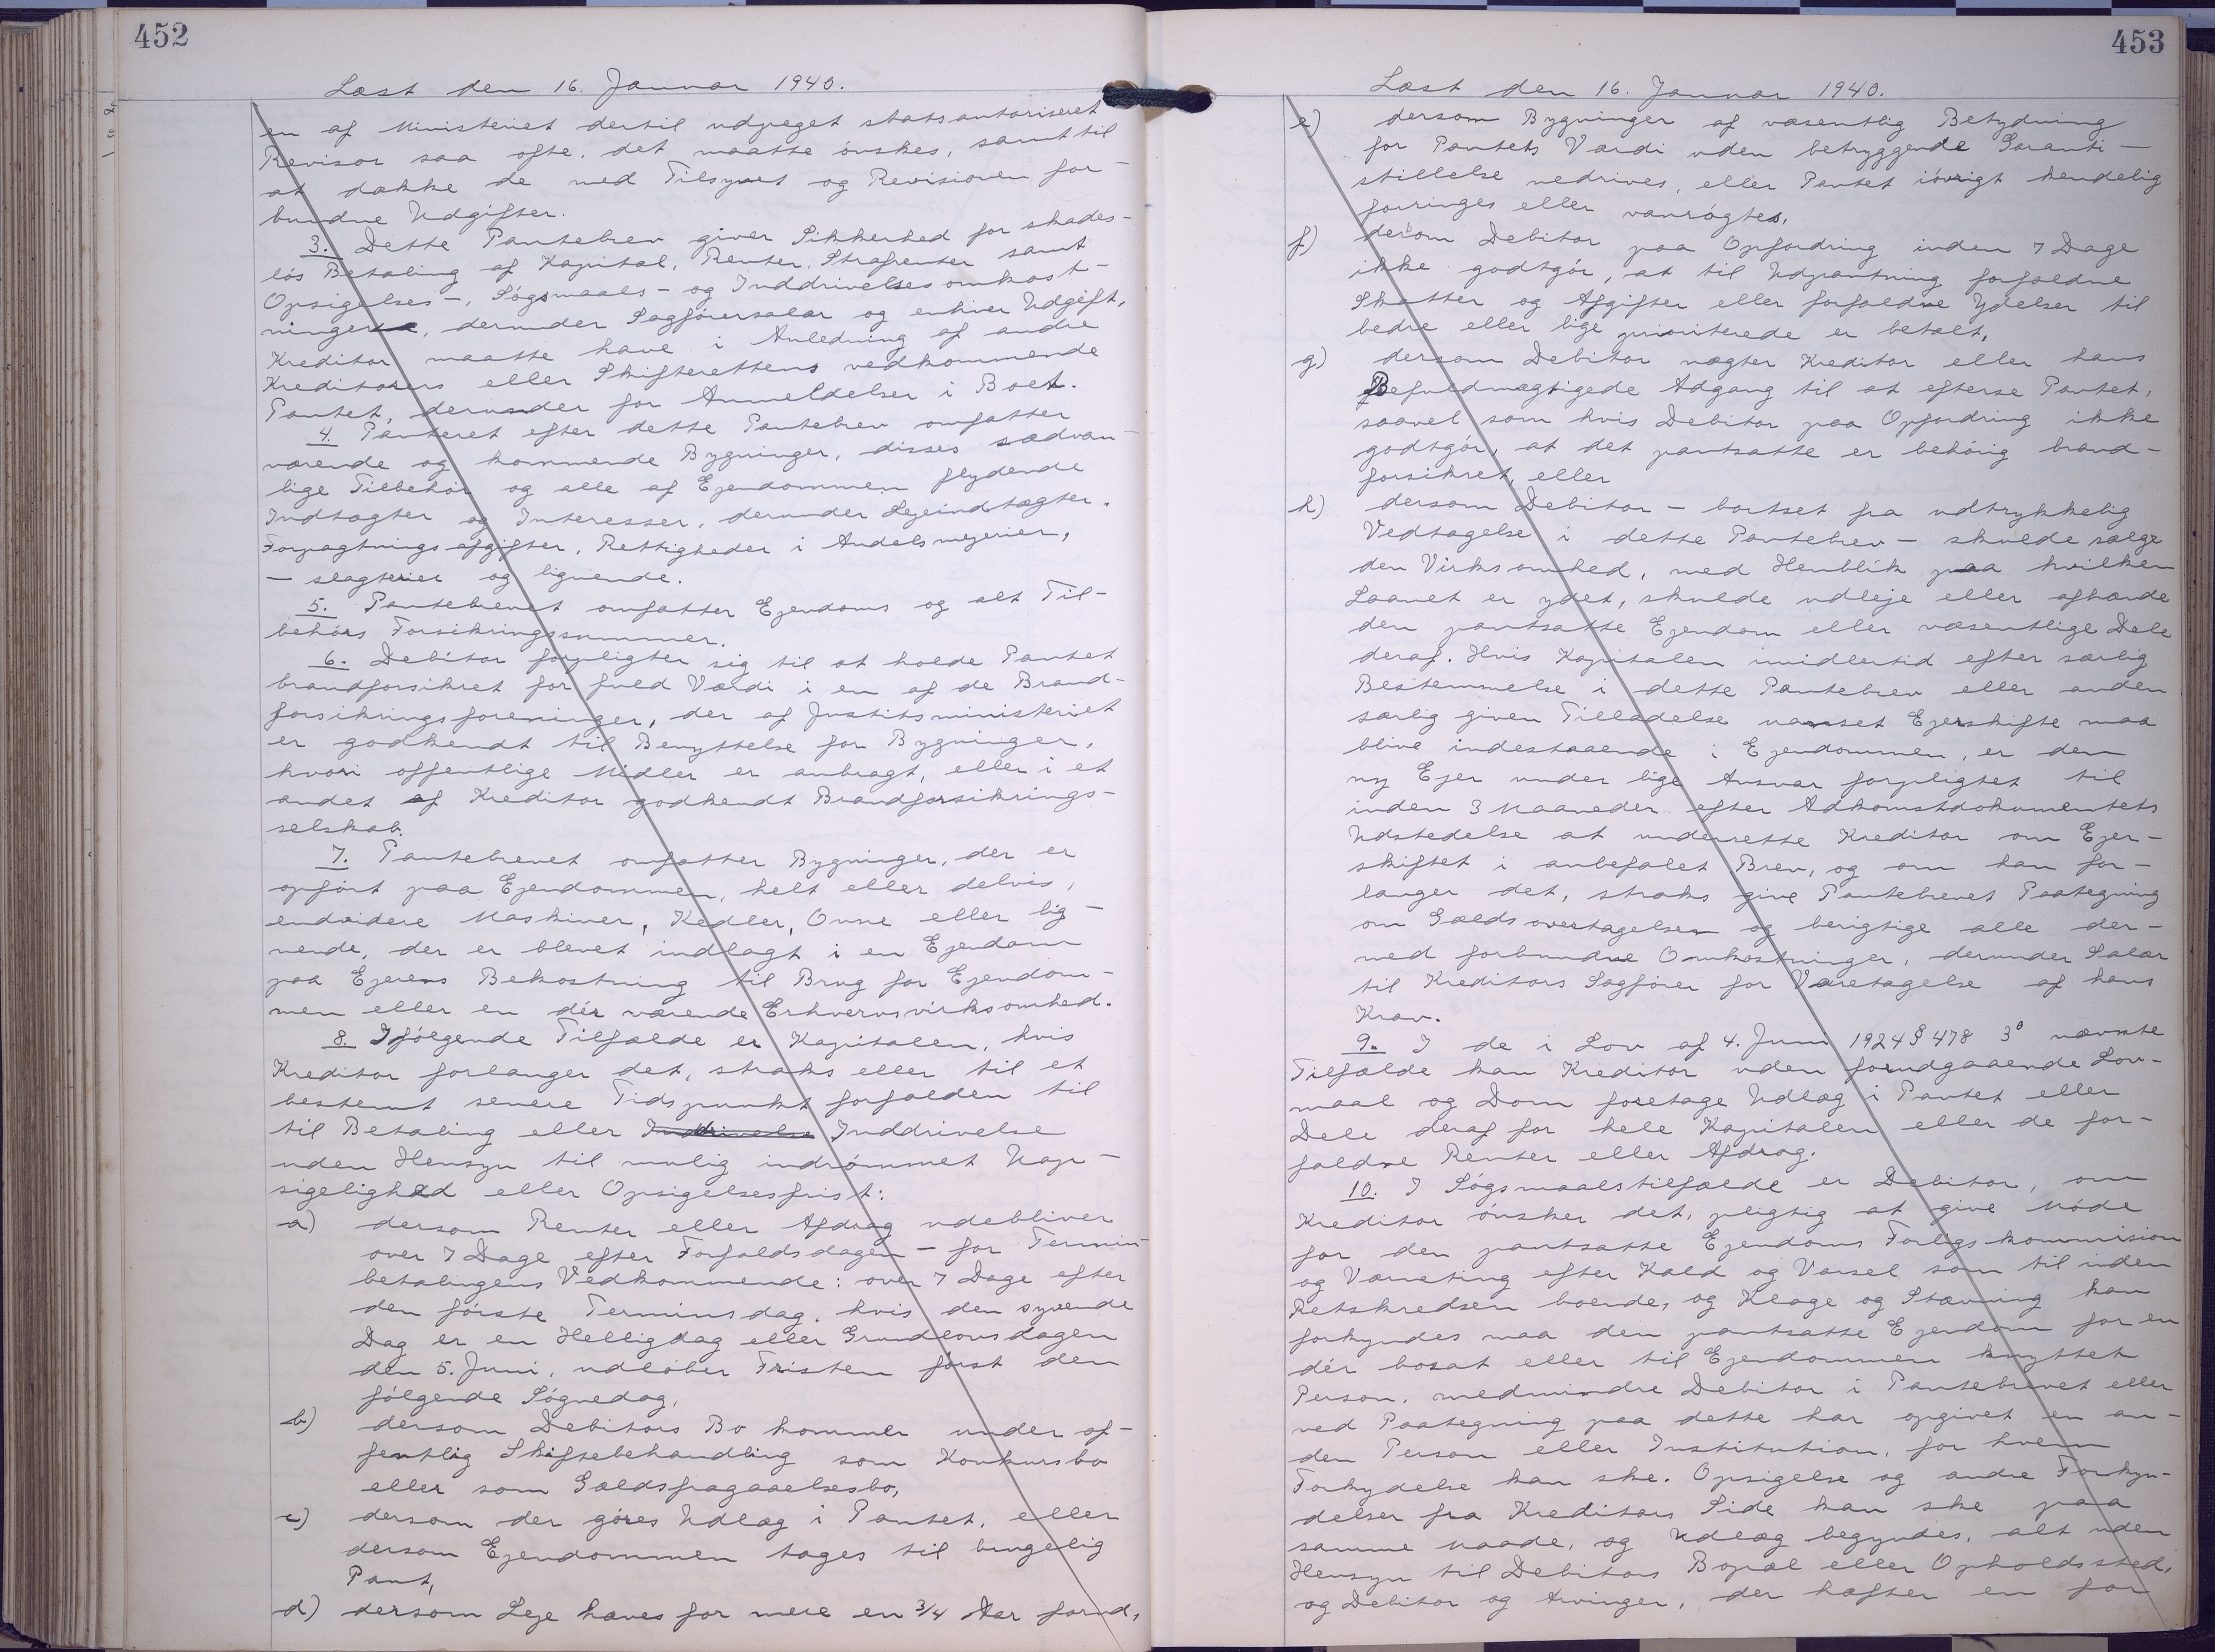 452
Læst den 16. Januar 1940.
en af Ministeriet dertil udpeget statsautoriseret
Revisor saa ofte det maatte ønskes, samt til
at dække de med Tilsynet og Revisionen for-
bundne Udgifter.
3. Dette Pantebrev giver Sikkerhed for skades-
løs Betaling af Kapital, Renter, Strafrenter samt
Opsigelses-, Søgsmaals- og Inddrivelsesomkost-
ninger, derunder Sagførersalær og enhver Udgift,
Kreditor maatte have i Anledning af andre
Kreditorers eller Skifterettens vedkommende
Pantet, derunder for Anmeldelser i Boet.
4. Panteret efter dette Pantebrev omfatter
værende og kommende Bygninger, disses sædvan-
lige Tilbehør og alle af Ejendommen flydende
Indtægter og Interesser, derunder Lejeindtægter,
Forpagtningsafgifter, Rettigheder i Andelsmejerier,
- slagterier og lignende.
5. Pantebrevet omfatter Ejendoms og alt Til-
behørs Forsikringssummer.
6. Debitor forpligter sig til at holde Pantet
brandforsikret for fuld Værdi i en af de Brand-
forsikringsforeninger, der af Justitsministeriet
er godkendt til Benyttelse for Bygninger,
hvori offentlige Midler er anbragt, eller i et
andet af Kreditor godkendt Brandforsikrings-
selskab.
7. Pantebrevet omfatter Bygninger, der er
opført paa Ejendommen, helt eller delvis,
endvidere Maskiner, Kedler, Ovne eller lig-
nende, der er blevet indlagt i en Ejendom
paa Ejerens Bekostning til Brug for Ejendom-
men eller en dér værende Erhvervsvirksomhed.
8. I følgende Tilfælde er Kapitalen, hvis
Kreditor forlanger det, straks eller til et
bestemt senere Tidspunkt forfalden til
til Betaling eller Inddrivelse Inddrivelse
uden Hensyn til mulig indrømmet Uop-
sigelighed eller Opsigelsesfrist:
a) dersom Renter eller Afdrag udebliver
over 7 Dage efter Forfaldsdagen - for Termin-
betalingens Vedkommende: over 7 Dage efter
den første Terminsdag, hvis den syvende
Dag er en Helligdag eller Grundlovsdagen
den 5. Juni, udløber Fristen først den
følgende Søgnedag,
b) dersom Debitors Bo kommer under of-
fentlig Skiftebehandling som Konkursbo
eller som Gældsfragaaelsesbo,
c) dersom der gøres Udlæg i Pantet, eller
dersom Ejendommen tages til brugelig
Pant,
d) dersom Leje hæves for mere en 3/4 Aar forud,
453
Læst den 16. Januar 1940.
e) dersom Bygninger af væsentlig Betydning
for Pantets Værdi uden betryggende Garanti-
stillelse nedrives, eller Pantet iøvrigt kendelig
forringes eller vanrøgtes,
f) dersom Debitor paa Opfordring inden 7 Dage
ikke godtgør, at til Udpantning forfaldne
Skatter og Afgifter eller forfaldne Ydelser til
bedre eller lige prioriterede er betalt,
g) dersom Debitor nægter Kreditor eller hans
Befuldmægtigede Adgang til at efterse Pantet,
saavel som hvis Debitor paa Opfordring ikke
godtgør, at det pantsatte er behørig brand-
forsikret, eller
h) dersom Debitor - bortset fra udtrykkelig
Vedtagelse i dette Pantebrev - skulde sælge
den Virksomhed, med Henblik paa hvilken
Laanet er ydet, skulde udleje eller afhænde
den pantsatte Ejendom eller væsentlige Dele
deraf. Hvis Kapitalen imidlertid efter særlig
Bestemmelse i dette Pantebrev eller anden
særlig given Tilladelse uanset Ejerskifte maa
blive indestaaende i Ejendommen, er den
ny Ejer under lige Ansvar forpligtet til
inden 3 Maaneder efter Adkomstdokumentets
Udstedelse at underrette Kreditor om Ejer-
skiftet i anbefalet Brev, og om han for-
langer det, straks give Pantebrevet Paategning
om Gældsovertagelsen og berigtige alle der-
med forbundne Omkostninger, derunder Salær
til Kreditors Sagfører for Varetagelse af hans
Krav.
9. I de i Lov af 4. Juni 1924 § 478 3° nævnte
Tilfælde kan Kreditor uden forudgaaende Lov-
maal og Dom foretage Udlæg i Pantet eller
Dele deraf for hele Kapitalen eller de for-
faldne Renter eller Afdrag.
10. I Søgsmaalstilfælde er Debitor, om
Kreditor ønsker det, pligtig at give Møde
for den pantsatte Ejendoms Forligskommision
og Værneting efter Kald og Varsel som til inden
Retskredsen boende, og Klage og Stævning kan
forkyndes maa den pantsatte Ejendom for en
dér bosat eller til Ejendommen knyttet
Person, medmindre Debitor i Pantebrevet eller
ved Paategning paa dette har opgivet en an-
den Person eller Institution, for hvem
Forkydelse kan ske. Opsigelse og andre Forkyn-
delser fra Kreditors Side kan ske paa
samme Maade, og Udlæg begyndes, alt uden
Hensyn til Debitors Bopæl eller Opholdssted,
og Debitor og Arvinger, der hæfter en for